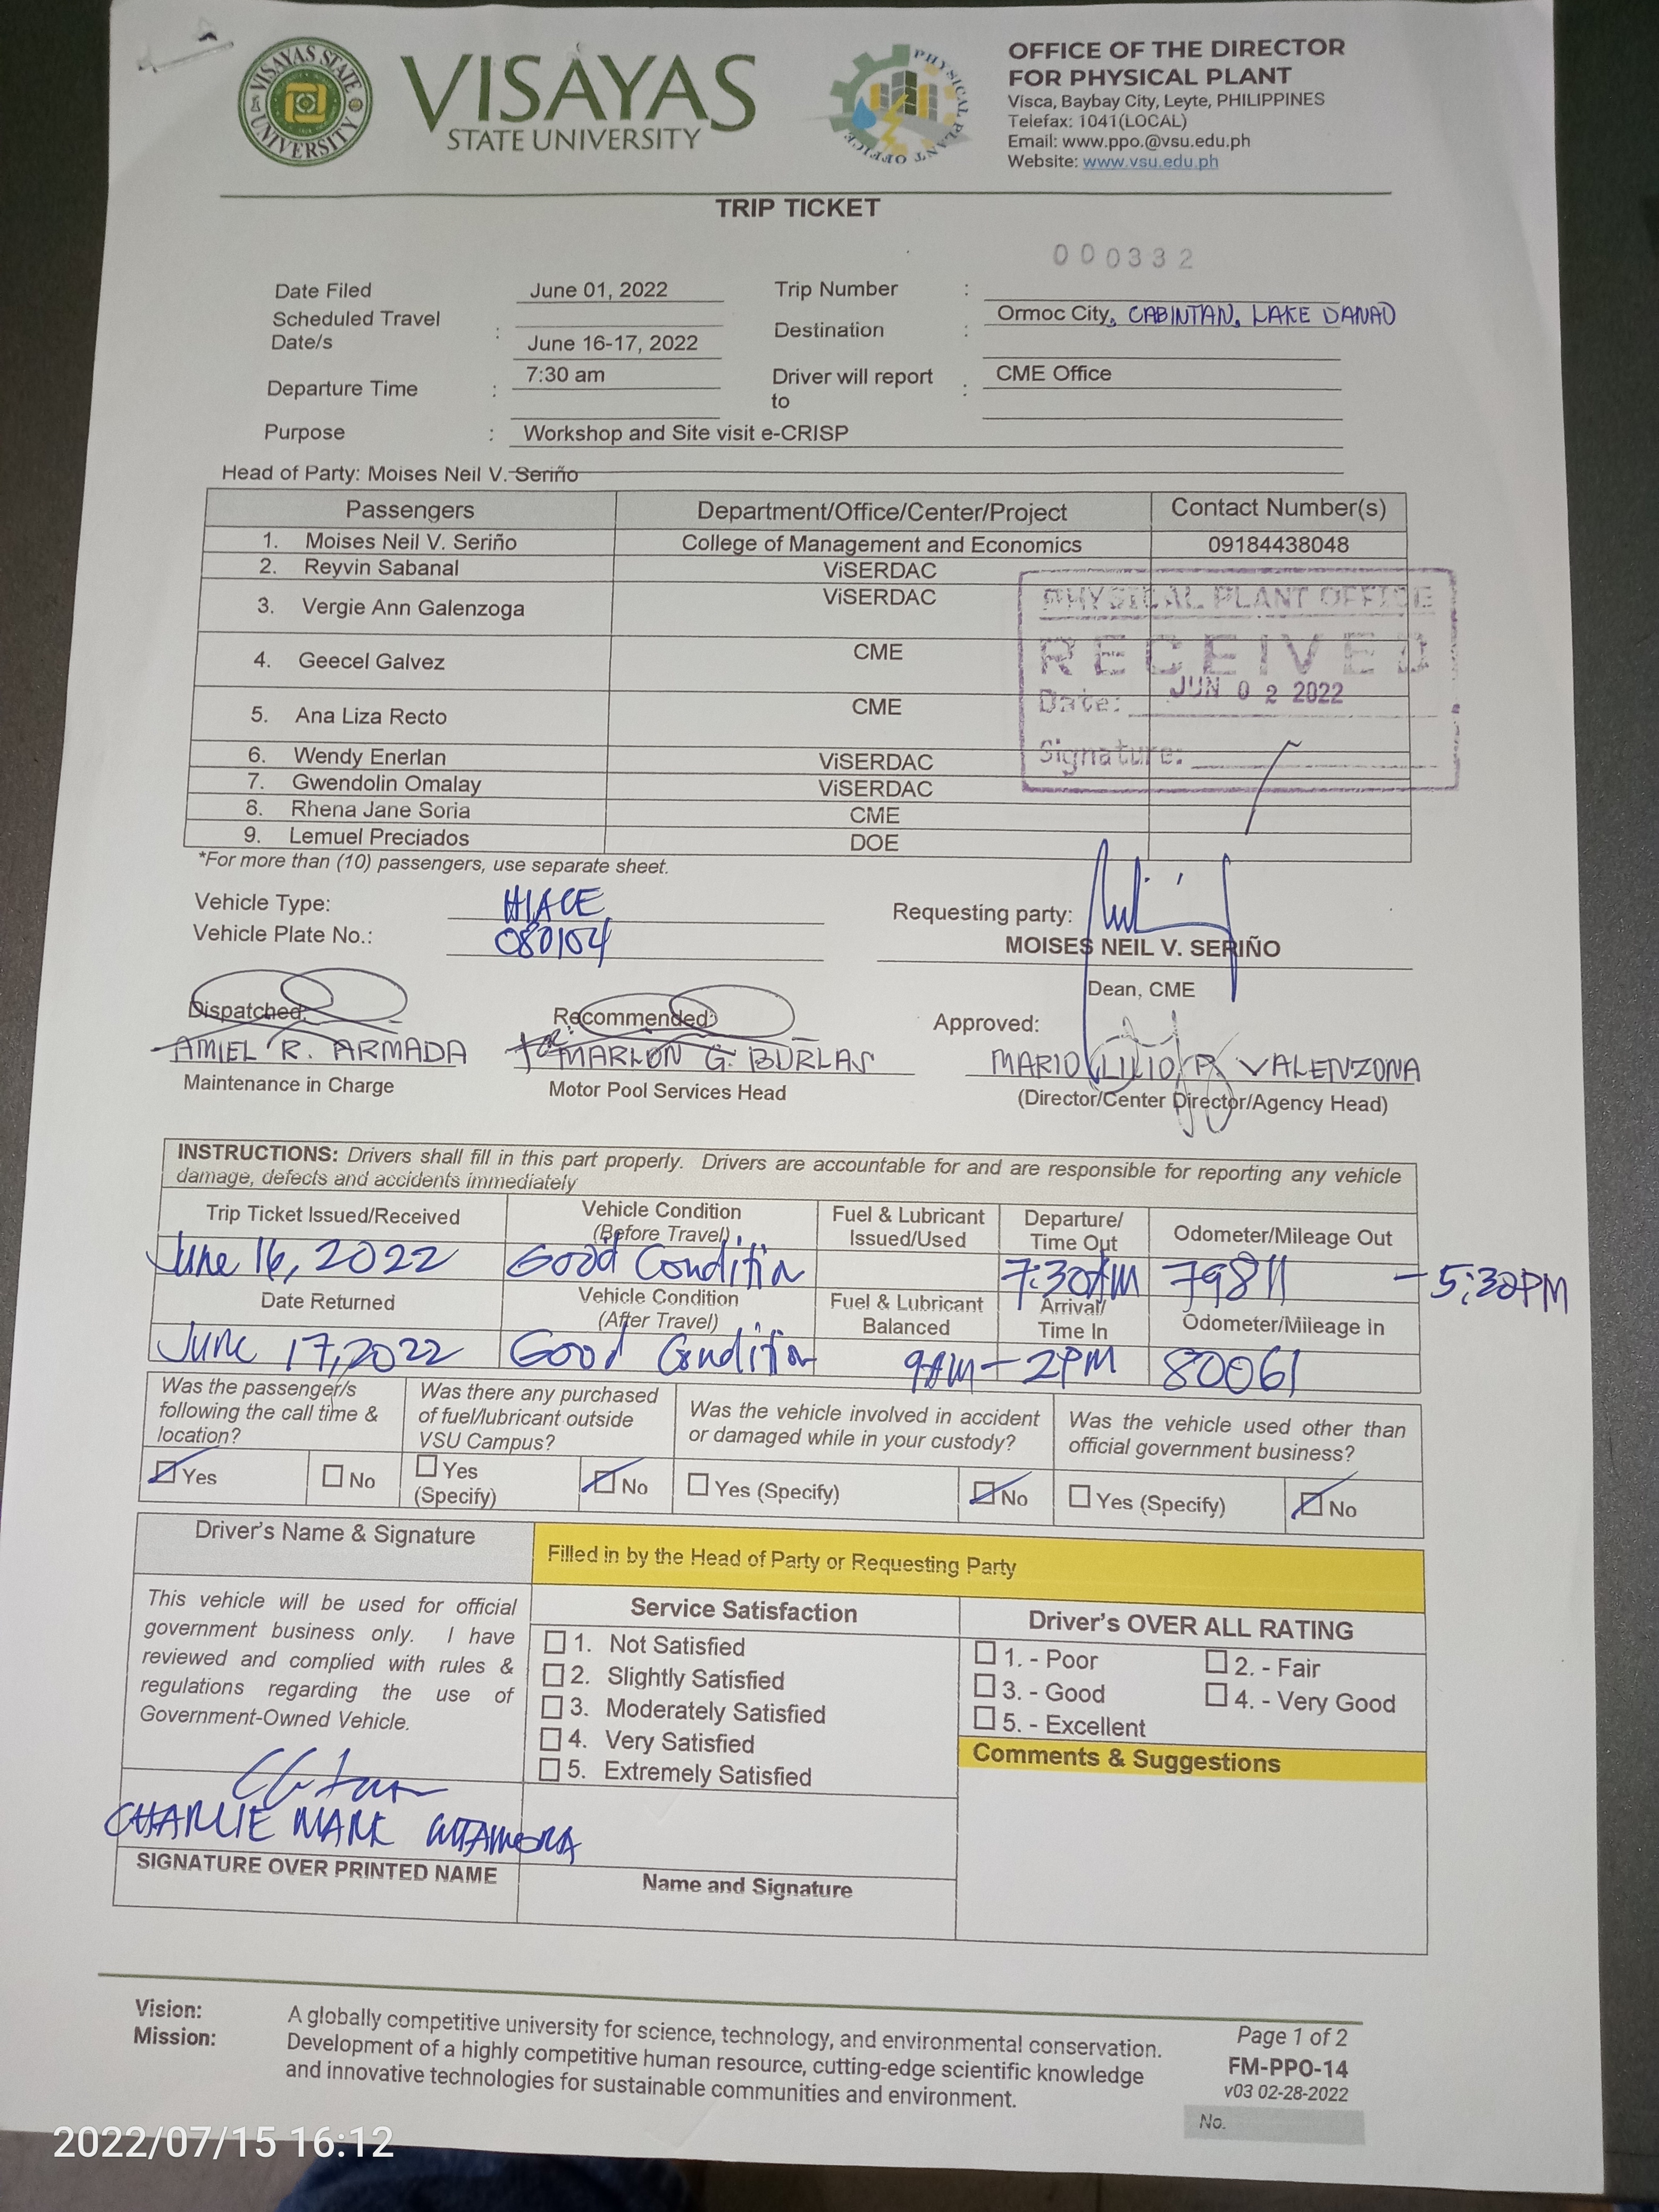 VISAYAS STATE UNIVERSITY
VISAYAS
STATE UNIVERSITY
PHYSICAL PLANT OFFICE
OFFICE OF THE DIRECTOR
FOR PHYSICAL PLANT
Visca, Baybay City, Leyte, PHILIPPINES
Telefax: 1041(LOCAL)
Email: www.ppo.@vsu.edu.ph
Website: www.vsu.edu.ph
TRIP TICKET
000332
Date Filed June 01, 2022 Trip Number :
Scheduled Travel Date/s : June 16-17, 2022 Destination : Ormoc City, CABINTAN, LAKE DANAO
Departure Time : 7:30 am Driver will report to : CME Office
Purpose : Workshop and Site visit e-CRISP
Head of Party: Moises Neil V. Seriño
Passengers Department/Office/Center/Project Contact Number(s)
1. Moises Neil V. Seriño College of Management and Economics 09184438048
2. Reyvin Sabanal ViSERDAC
3. Vergie Ann Galenzoga ViSERDAC
4. Geecel Galvez CME
5. Ana Liza Recto CME
6. Wendy Enerlan ViSERDAC
7. Gwendolin Omalay ViSERDAC
8. Rhena Jane Soria CME
9. Lemuel Preciados DOE
PHYSICAL PLANT OFFICE
RECEIVED
Date: JUN 02 2022
Signature:
*For more than (10) passengers, use separate sheet.
Vehicle Type: HIACE
Vehicle Plate No.: 080104
Requesting party:
MOISES NEIL V. SERIÑO
Dean, CME
Dispatched: Recommended: Approved:
AMIEL R. ARMADA for: MARLON G. BURLAS MARIO LILIO P. VALENZONA
Maintenance in Charge Motor Pool Services Head (Director/Center Director/Agency Head)
INSTRUCTIONS: Drivers shall fill in this part properly. Drivers are accountable for and are responsible for reporting any vehicle
damage, defects and accidents immediately
Trip Ticket Issued/Received Vehicle Condition (Before Travel) Fuel & Lubricant Issued/Used Departure/ Time Out Odometer/Mileage Out
June 16, 2022 Good Condition 7:30AM 79811 - 5:30PM
Date Returned Vehicle Condition (After Travel) Fuel & Lubricant Balanced Arrival/ Time In Odometer/Mileage in
June 17, 2022 Good Condition 9AM - 2PM 80061
Was the passenger/s following the call time & location? Was there any purchased of fuel/lubricant outside VSU Campus? Was the vehicle involved in accident or damaged while in your custody? Was the vehicle used other than official government business?
Yes No Yes (Specify) No Yes (Specify) No Yes (Specify) No
Driver's Name & Signature
Filled in by the Head of Party or Requesting Party
This vehicle will be used for official
government business only. I have
reviewed and complied with rules &
regulations regarding the use of
Government-Owned Vehicle.
CHARLIE MARK
SIGNATURE OVER PRINTED NAME
Service Satisfaction
1. Not Satisfied
2. Slightly Satisfied
3. Moderately Satisfied
4. Very Satisfied
5. Extremely Satisfied
Name and Signature
Driver's OVER ALL RATING
1. - Poor 2. - Fair
3. - Good 4. - Very Good
5. - Excellent
Comments & Suggestions
Vision: A globally competitive university for science, technology, and environmental conservation.
Mission: Development of a highly competitive human resource, cutting-edge scientific knowledge
and innovative technologies for sustainable communities and environment.
Page 1 of 2
FM-PPO-14
v03 02-28-2022
No.
2022/07/15 16:12